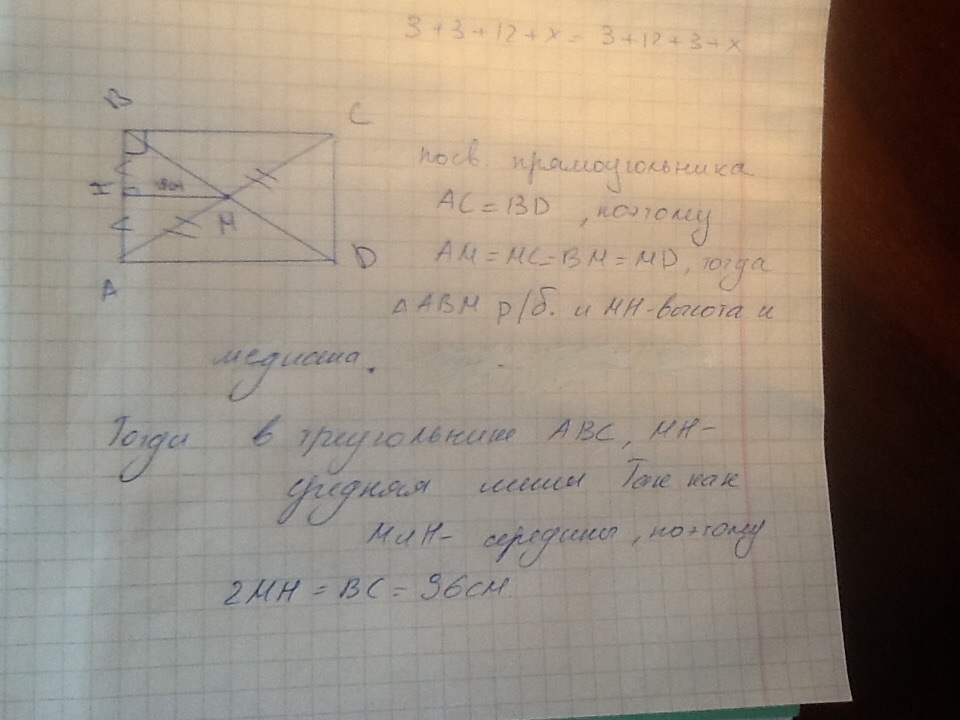 3+3+12+x = 3+12+3+x
B
C
H
M
D
A
по св. прямоугольника
AC = BD , поэтому
AM = MC = BM = MD, тогда
△ABM р/б. и MH - высота и
медиана.
Тогда в треугольнике ABC, MH -
средняя линия Так как
M и H - середины, поэтому
2MH = BC = 96см